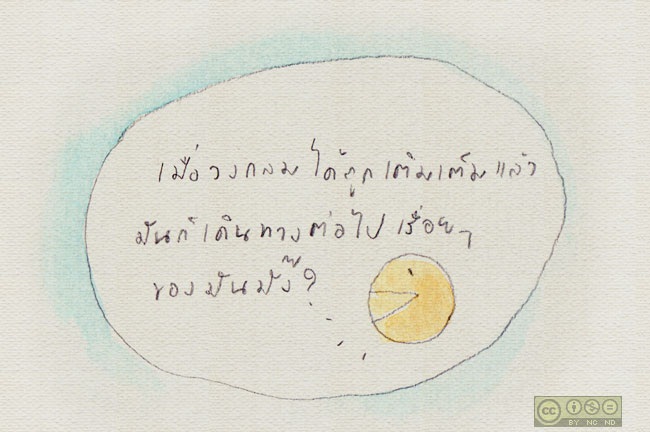 เมื่อวงกลมได้ถูกเติมเต็มแล้ว
มันก็เดินทางต่อไปเรื่อยๆ
ของมันมั๊ง?
cc
BY NC ND